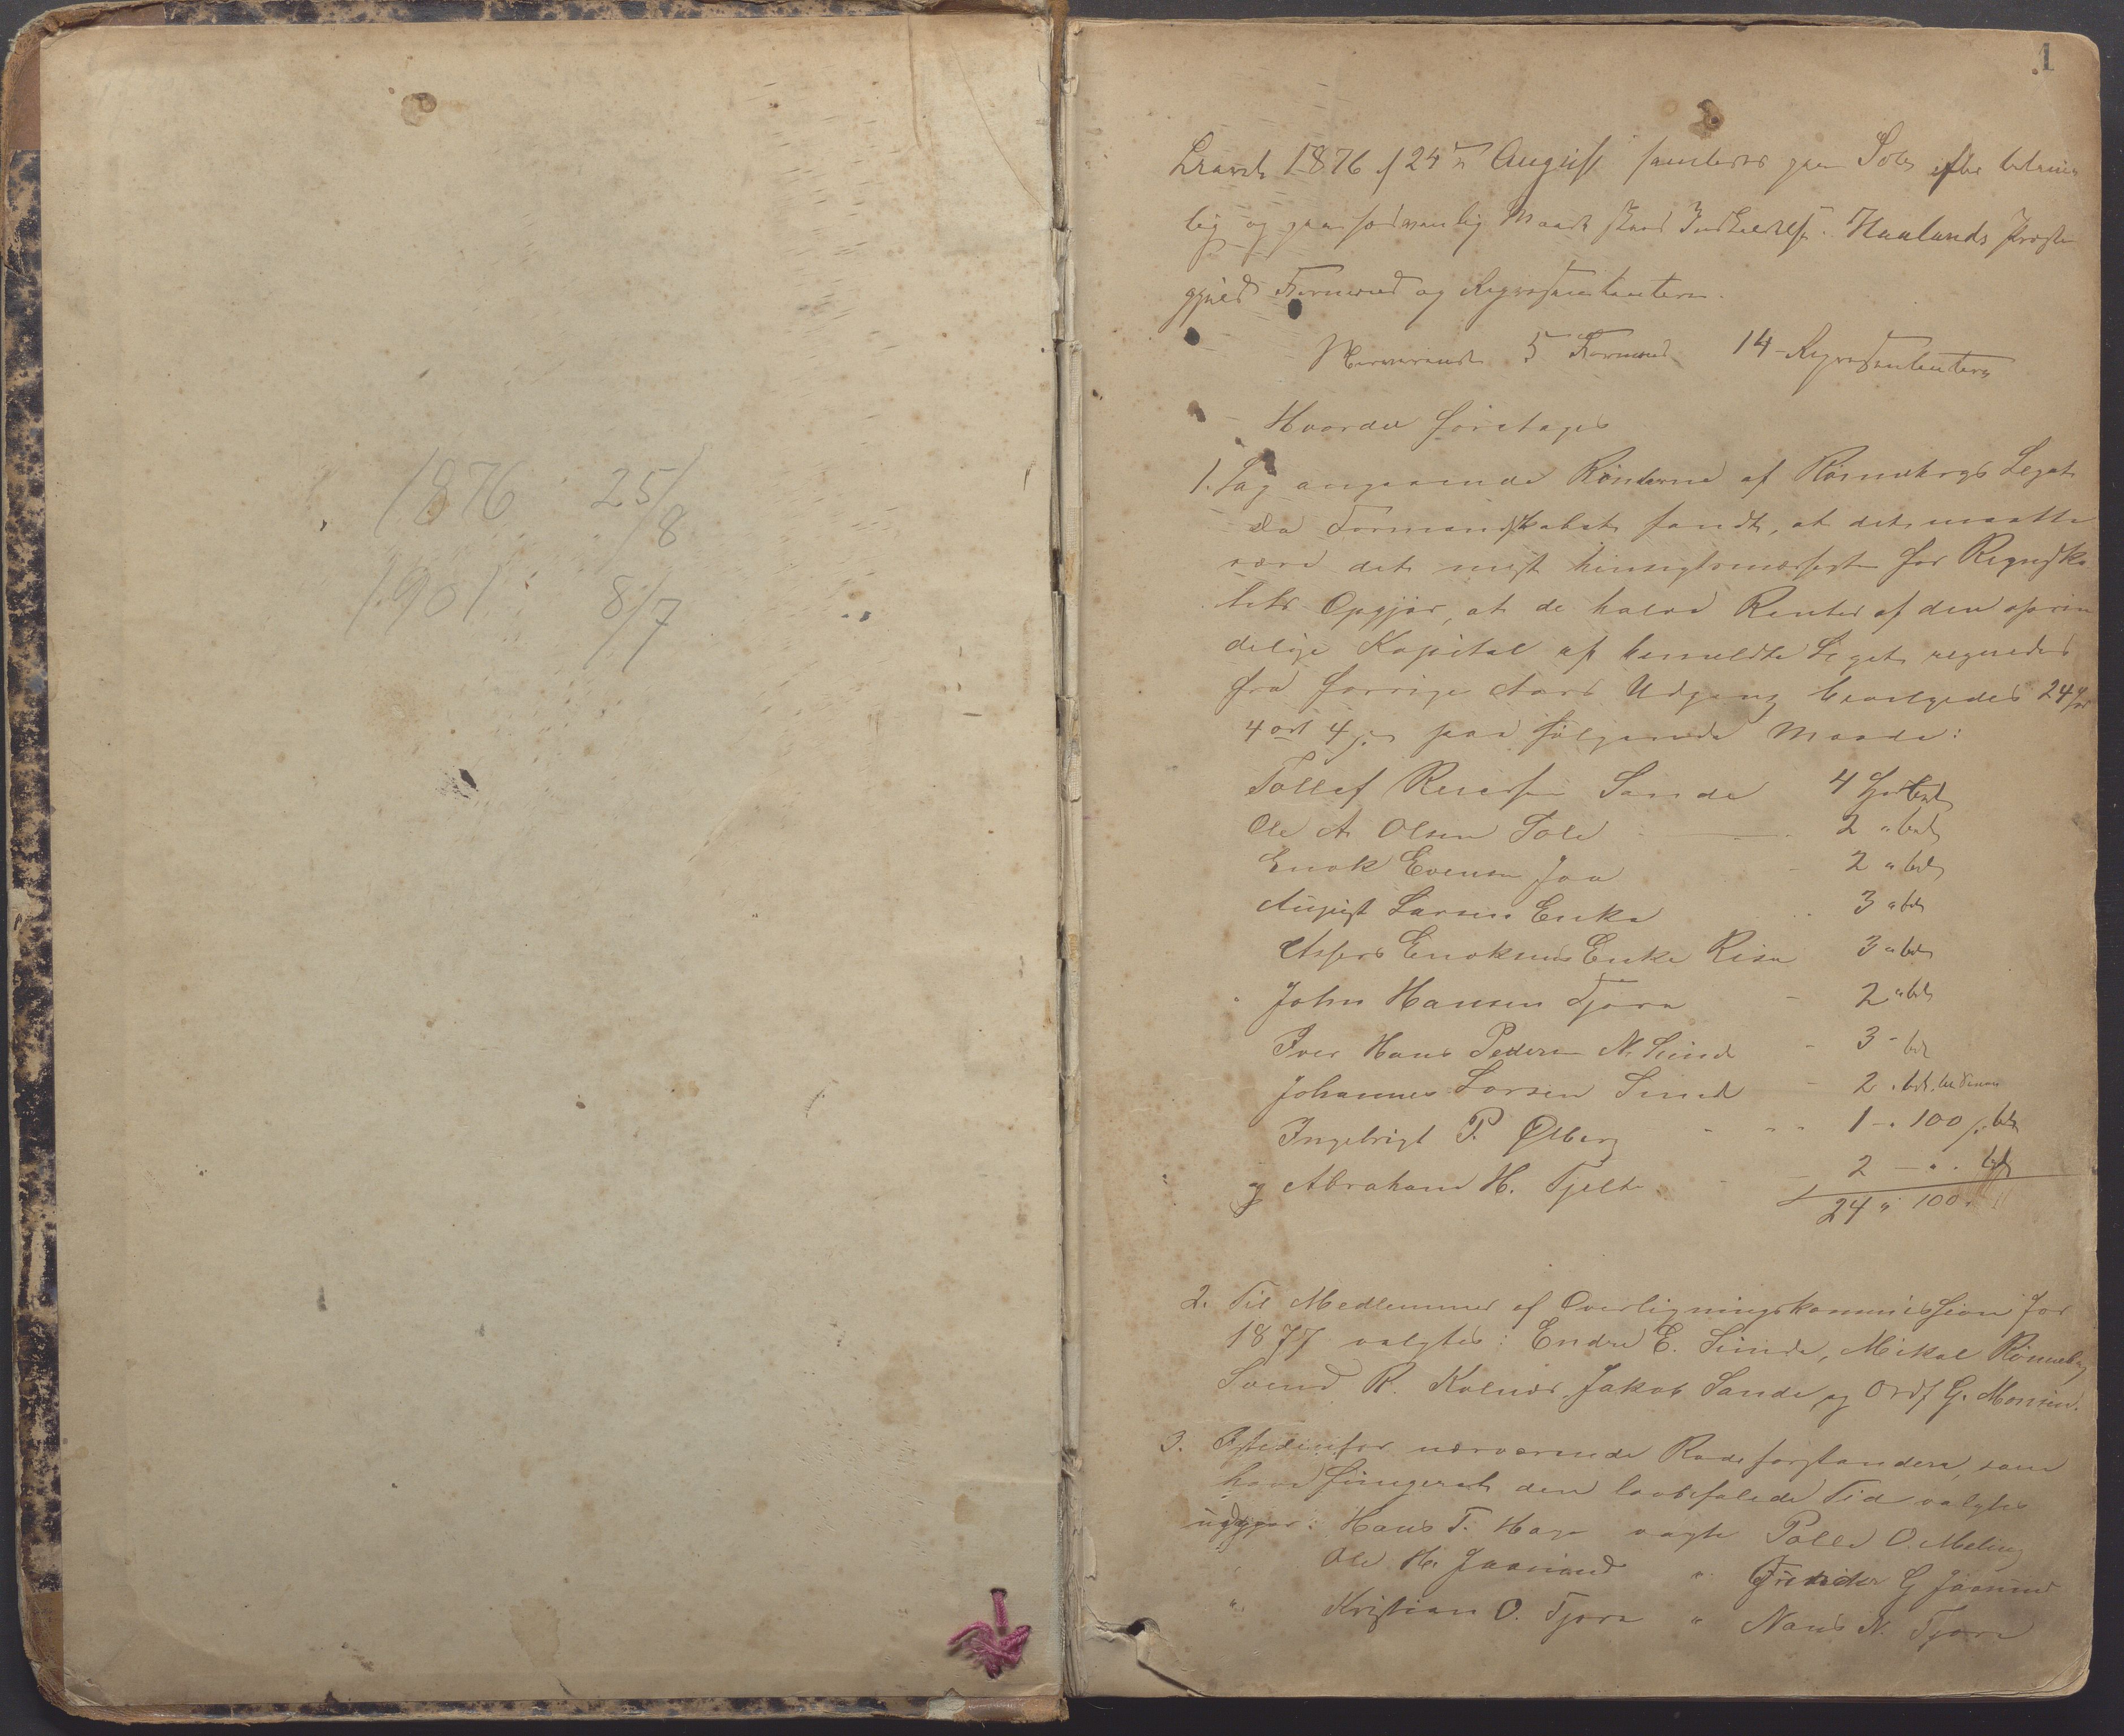 1876 25/8
1901 8/7
1
1876 24 August samledes paa Sole efter betime
lig og paa sædvanlig Maade skeed Indkaldelse Haalands Præste
gjeld Formænd og Repræsentantere.
Nærværende 5 Formænd 14 Repræsentantere
Hvorda foretoges
1. Sag angaaende Renterne af Rønnebergs Legat
Da Formandskabet fandt, at det maatte
være det mest hensigtsmæssigste for Regnska
bets Opgjør, at de halve Renter af den oprin
delige Kapital af bemeldte Legat regnedes
fra forrige Aars Udgang bevilgedes 24 Spd
4 ort 4 s. paa følgende Maade:
Tollef Reiersen Sande 4 Spd bet
Ole A Olsen Sole 2 " bet
Enok Evensen Joa 2 " bet
August Larsen Enke 3 " bet
Asser Enoksens Enke Risa 3 " bet
John Hansen Tjora 2 " bet
Iver Hans Pedersen N. Sunde 3 - bet
Johannes Larsen Sunde 2 . bet.
Ingebrigt P. Ølberg 1 - . 100 s. bet
og Abraham H. Tjelta 2 - . . bet
24 " 100 .
2. Til Medlemmer af Overligningskommissionen for
1877 valgtes: Endre E. Sunde, Mikal Rønneberg
Svend R. Kolnes Jakob Sande og Ordf G. Monsen.
3. Istedenfor nærværende Rodeforstandere, som
have fungeret den lovbefalede Tid valgtes
udgaar: Hans T. Haga valgte Palle O. Meling
" Ole H. Jaasund " G Jaasund
" Kristian O. Tjora " Hans N. Tjora